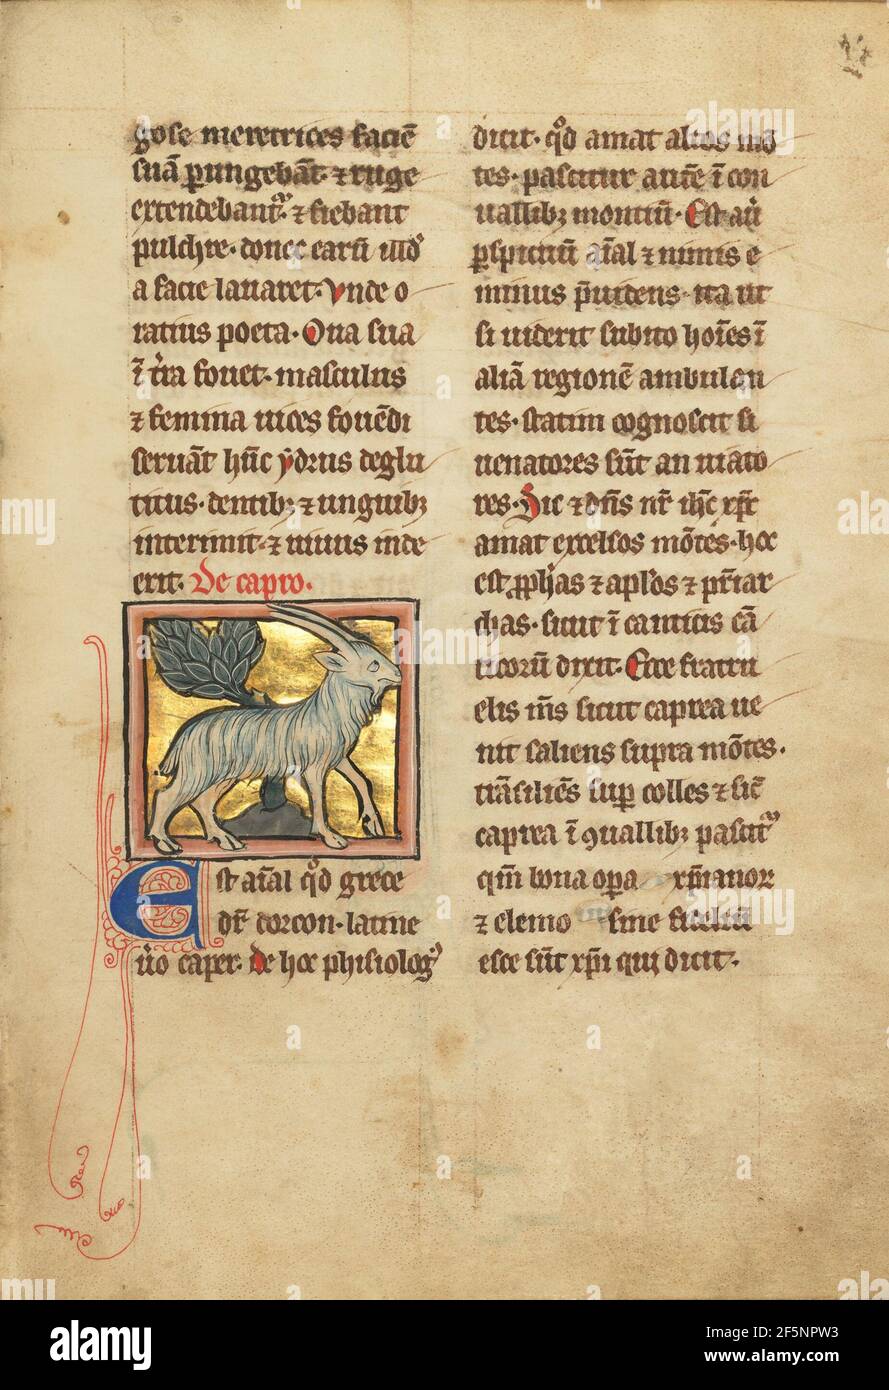 gose meretrices faciē
suā ꝑungebāt ⁊ ruge
extendebantᷣ ⁊ fiebant
pulchre. donec earū
a facie lavaret. Vnde o
ratius poeta. Ova sua
ī fouet. masculus
⁊ femina vices fouēdi
seruāt hūc ydrus deglu
titus. dentibꝫ ⁊ unguibꝫ
interimit ⁊ uiuus inde
erit. De capro.
Est aīal qd̄ grece
dr̄ dorcon. latine
u̾o caper. de hoc phisiologꝰ
dicit. qd̄ amat altos mō
tes. pascitur autē ī con
uallibꝫ montiū. Est
ꝑspicuū aīal ⁊ nimis e
minus p̄uidens. ita ut
si uiderit subito hoīes ī
aliā regionē ambulan
tes. statim cognoscit si
uenatores sūt an uiato
res. Sic ⁊ dn̄s nr̄ ihc̄ xp̄c
amat excelsos mōtes. hoc
est ꝓph̄as ⁊ apl̄os ⁊ pr̄iar
chas. sicut ī canticis cā
ticorū dixit. Ecce fratru
elis m̄s sicut caprea ue
nit saliens supra mōtes.
trāsiliēs suꝑ colles ⁊ sic̄
caprea ī ꝯuallibꝫ pascitᷣ
qm̄ bona opa xp̄ianor
⁊ elemo sine fideliū
esce sūt xp̄i qui dicit.
alamy
Image ID: 2F5NPW3
www.alamy.com